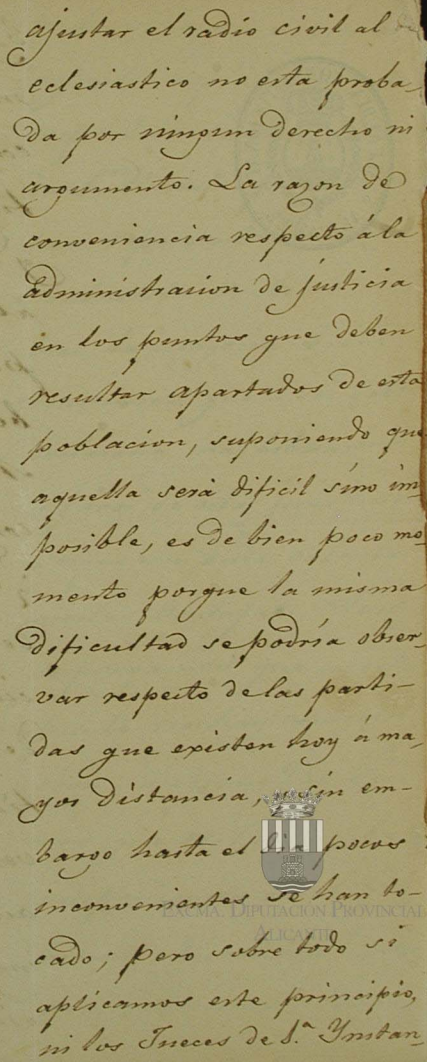 ajustar el radio civil al
eclesiastico no esta proba-
da por ningun derecho ni
argumento. La razon de
conveniencia respecto á la
administracion de justicia
en los puntos que deben
resultar apartados de esta
poblacion, suponiendo que
aquella será dificil sino im-
posible, es de bien poco mo-
mento porque la misma
dificultad se podría obser-
var respecto de las parti-
das que existen hoy á ma-
yor distancia, sin em-
bargo hasta el dia pocos
inconvenientes se han to-
EXCMA. DIPUTACIÓN PROVINCIAL
ALICANTE
cado; pero sobre todo si
aplicamos este principio,
ni los Jueces de 1.ª Ynstan-